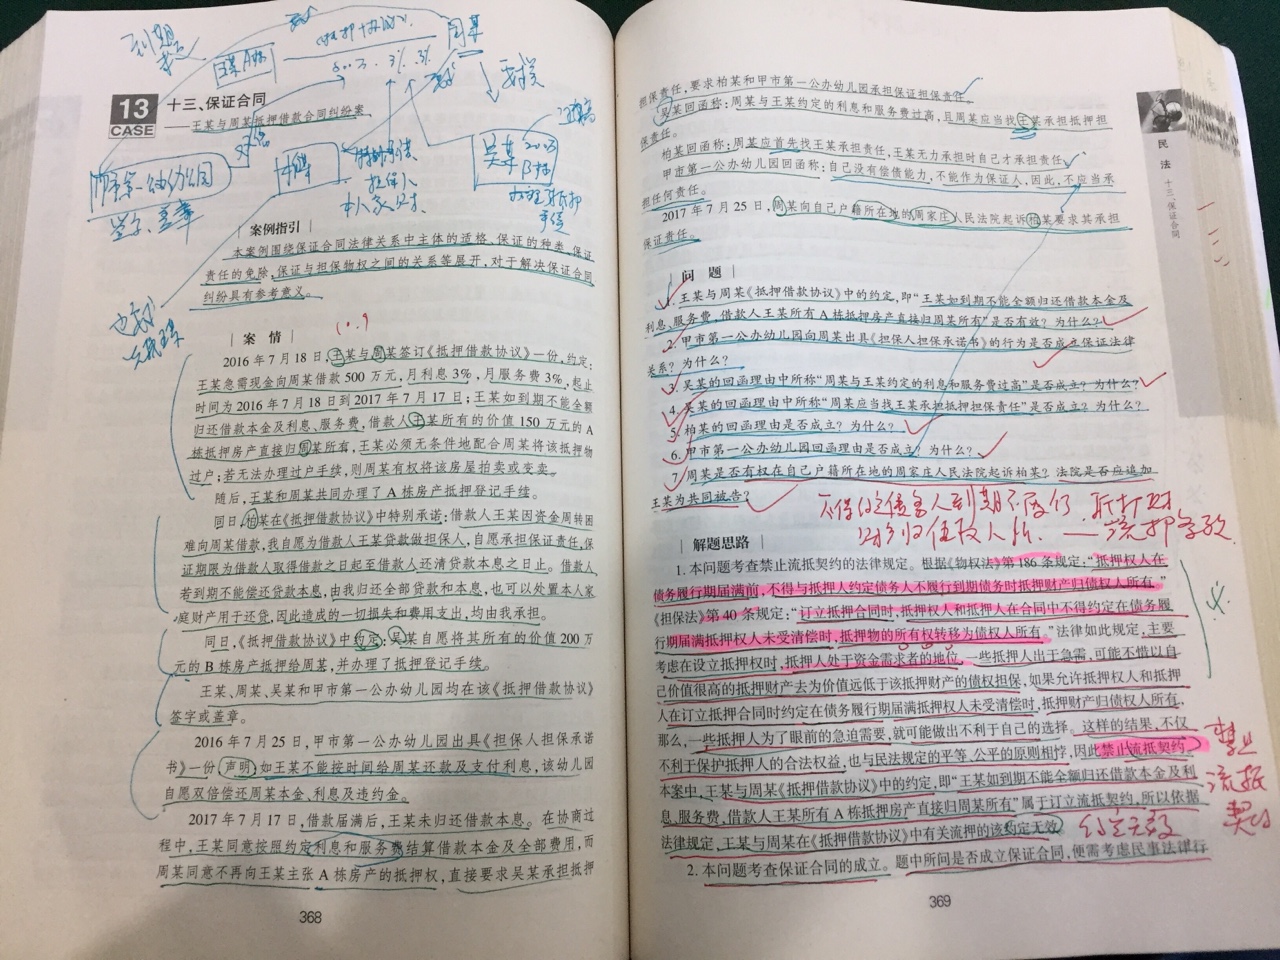 13
CASE
十三、保证合同
——王某与周某抵押借款合同纠纷案
到期
王某A栋
抵押协议
周某
500万 3% 3%
吴某 200万
B栋
办理抵押
手续
担保人
签字、盖章
｜案例指引｜
本案例围绕保证合同法律关系中主体的适格、保证的种类、保证
责任的免除、保证与担保物权之间的关系等展开,对于解决保证合同
纠纷具有参考意义。
｜案 情｜
2016年7月18日,王某与周某签订《抵押借款协议》一份,约定:
王某急需现金向周某借款500万元,月利息3%,月服务费3%,起止
时间为2016年7月18日到2017年7月17日;王某如到期不能全额
归还借款本金及利息、服务费,借款人王某所有的价值150万元的A
栋抵押房产直接归周某所有,王某必须无条件地配合周某将该抵押物
过户;若无法办理过户手续,则周某有权将该房屋拍卖或变卖。
随后,王某和周某共同办理了A栋房产抵押登记手续。
同日,柏某在《抵押借款协议》中特别承诺:借款人王某因资金周转困
难向周某借款,我自愿为借款人王某贷款做担保人,自愿承担保证责任,保
证期限为借款人取得借款之日起至借款人还清贷款本息之日止。借款人
若到期不能偿还贷款本息,由我归还全部贷款和本息,也可以处置本人家
庭财产用于还贷,因此造成的一切损失和费用支出,均由我承担。
同日,《抵押借款协议》中约定:吴某自愿将其所有的价值200万
元的B栋房产抵押给周某,并办理了抵押登记手续。
王某、周某、吴某和甲市第一公办幼儿园均在该《抵押借款协议》
签字或盖章。
2016年7月25日,甲市第一公办幼儿园出具《担保人担保承诺
书》一份,声明:如王某不能按时间给周某还款及支付利息,该幼儿园
自愿双倍偿还周某本金、利息及违约金。
2017年7月17日,借款届满后,王某未归还借款本息。在协商过
程中,王某同意按照约定利息和服务费结算借款本金及全部费用,而
周某同意不再向王某主张A栋房产的抵押权,直接要求吴某承担抵押
368
担保责任,要求柏某和甲市第一公办幼儿园承担保证担保责任。
吴某回函称:周某与王某约定的利息和服务费过高,且周某应当找王某承担抵押担
保责任。
柏某回函称:周某应首先找王某承担责任,王某无力承担时自己才承担责任。
甲市第一公办幼儿园回函称:自己没有偿债能力,不能作为保证人,因此,不应当承
担任何责任。
2017年7月25日,周某向自己户籍所在地的周家庄人民法院起诉柏某要求其承担
保证责任。
民法
十三、保证合同
｜问 题｜
1.王某与周某《抵押借款协议》中的约定,即“王某如到期不能全额归还借款本金及
利息、服务费,借款人王某所有A栋抵押房产直接归周某所有”是否有效?为什么?
2.甲市第一公办幼儿园向周某出具《担保人担保承诺书》的行为是否成立保证法律
关系?为什么?
3.吴某的回函理由中所称“周某与王某约定的利息和服务费过高”是否成立?为什么?
4.吴某的回函理由中所称“周某应当找王某承担抵押担保责任”是否成立?为什么?
5.柏某的回函理由是否成立?为什么?
6.甲市第一公办幼儿园回函理由是否成立?为什么?
7.周某是否有权在自己户籍所在地的周家庄人民法院起诉柏某?法院是否应追加
王某为共同被告?
｜解题思路｜
1.本问题考查禁止流抵契约的法律规定。根据《物权法》第186条规定:“抵押权人在
债务履行期届满前,不得与抵押人约定债务人不履行到期债务时抵押财产归债权人所有。”
《担保法》第40条规定:“订立抵押合同时,抵押权人和抵押人在合同中不得约定在债务履
行期届满抵押权人未受清偿时,抵押物的所有权转移为债权人所有。”法律如此规定,主要
考虑在设立抵押权时,抵押人处于资金需求者的地位,一些抵押人出于急需,可能不惜以自
己价值很高的抵押财产去为价值远低于该抵押财产的债权担保,如果允许抵押权人和抵押
人在订立抵押合同时约定在债务履行期届满抵押权人未受清偿时,抵押财产归债权人所有,
那么,一些抵押人为了眼前的急迫需要,就可能做出不利于自己的选择。这样的结果,不仅
不利于保护抵押人的合法权益,也与民法规定的平等、公平的原则相悖,因此禁止流抵契约。
本案中,王某与周某《抵押借款协议》中的约定,即“王某如到期不能全额归还借款本金及利
息、服务费,借款人王某所有A栋抵押房产直接归周某所有”属于订立流抵契约,所以依据
法律规定,王某与周某在《抵押借款协议》中有关流押的该约定无效。
约定无效
禁止
流抵
契约
2.本问题考查保证合同的成立。题中所问是否成立保证合同,便需考虑民事法律行
369